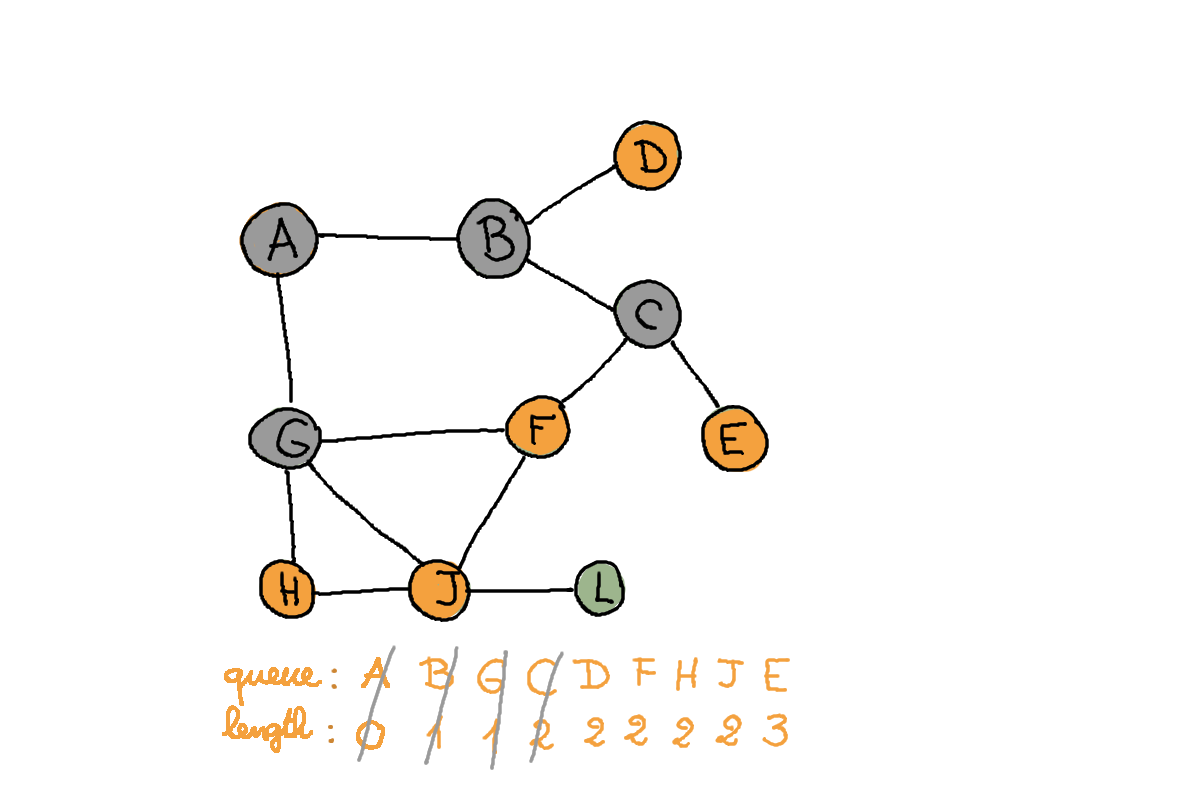 D
A B
C
G F E
H J L
queue: A B G C D F H J E
length: 0 1 1 2 2 2 2 2 3